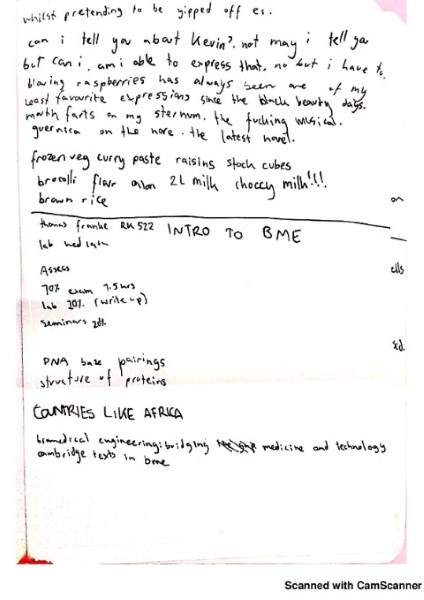 whilst pretending to be yipped off es.
can i tell you about Kevin?. not may i tell ya
but can i. am i able to express that. no but i have to.
blowing raspberries has always been one of my
least favourite expressions since the black beauty days.
mouth farts on my sternum. the fucking musical.
guernica on the nose. the latest novel.
frozen veg curry paste raisins stock cubes
brocolli flour onion 2L milk choccy milk!!!
brown rice
on
thomas franke RK 522 INTRO TO BME
lab wed 10am
Assess
70% exam 1.5hrs
lab 20% (write up)
seminars 20%
ells
Ed.
DNA base pairings
structure of proteins
COUNTRIES LIKE AFRICA
biomedical engineering: bridging medicine and technology
cambridge texts in bme
Scanned with CamScanner